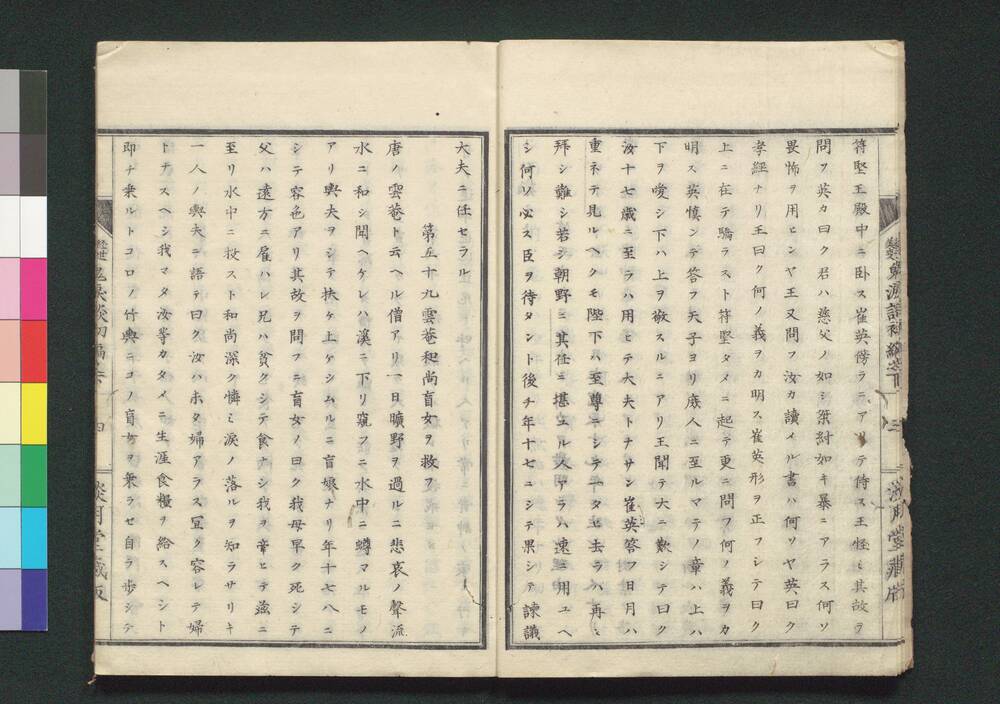 符堅王殿中ニ卧ス崔英傍ラニアリテ侍ス王怪ミ其故ヲ
問フ英カ曰ク君ハ慈父ノ如シ桀紂如キ暴ニアラス何ソ
畏怖ヲ用ヒンヤ王又問フ汝カ讀メル書ハ何ソヤ英曰ク
孝經ナリ王曰ク何ノ義ヲカ明ス崔英形ヲ正フシテ曰ク
上ニ在テ驕ラスト符堅タメニ起テ更ニ問フ何ノ義ヲカ
明ス英慎ンデ答フ天子ヨリ庶人ニ至ルマテノ章ハ上ハ
下ヲ愛シ下ハ上ヲ敬スルニアリ王聞テ大ニ歎シテ曰ク
汝十七歳ニ至ラハ用ヒテ大夫トナサン崔英答フ日月ハ
重ネテ見ルヘクモ陛下ハ至尊ニシテ一タヒ去ラハ再ヒ
拜シ難シ若シ朝野ニ其任ニ堪エル人アラハ速ニ用ユヘ
シ何ソ必ス臣ヲ待タント後チ年十七ニシテ果シテ諫議
大夫ニ任セラル
第五十九雲菴和尚盲女ヲ救フ
唐ノ雲菴ト云ヘル僧アリ一日曠野ヲ過ルニ悲哀ノ聲流
水ニ和シ聞ヘケレハ溪ニ下リ窺フニ水中ニ蹲マルモノ
アリ輿夫ヲシテ扶ケ上ケシムルニ盲娘ナリ年十七八ニ
シテ容色アリ其故ヲ問フニ盲女ノ曰ク我母早ク死シテ
父ハ遠方ニ雇ハレ兄ハ貧クシテ食ナシ我ヲ牽ヒテ茲ニ
至リ水中ニ投スト和尚深ク憐ミ涙ノ落ルヲ知ラサリキ
一人ノ輿夫ニ語テ曰ク汝ハホタ婦アラス冝ク容レテ婦
トナスヘシ我マタ汝等カタメニ生涯食糧ヲ給スヘシト
即チ乗ルトコロノ竹輿ニコノ盲女ヲ乗ラセ自ラ歩シテ